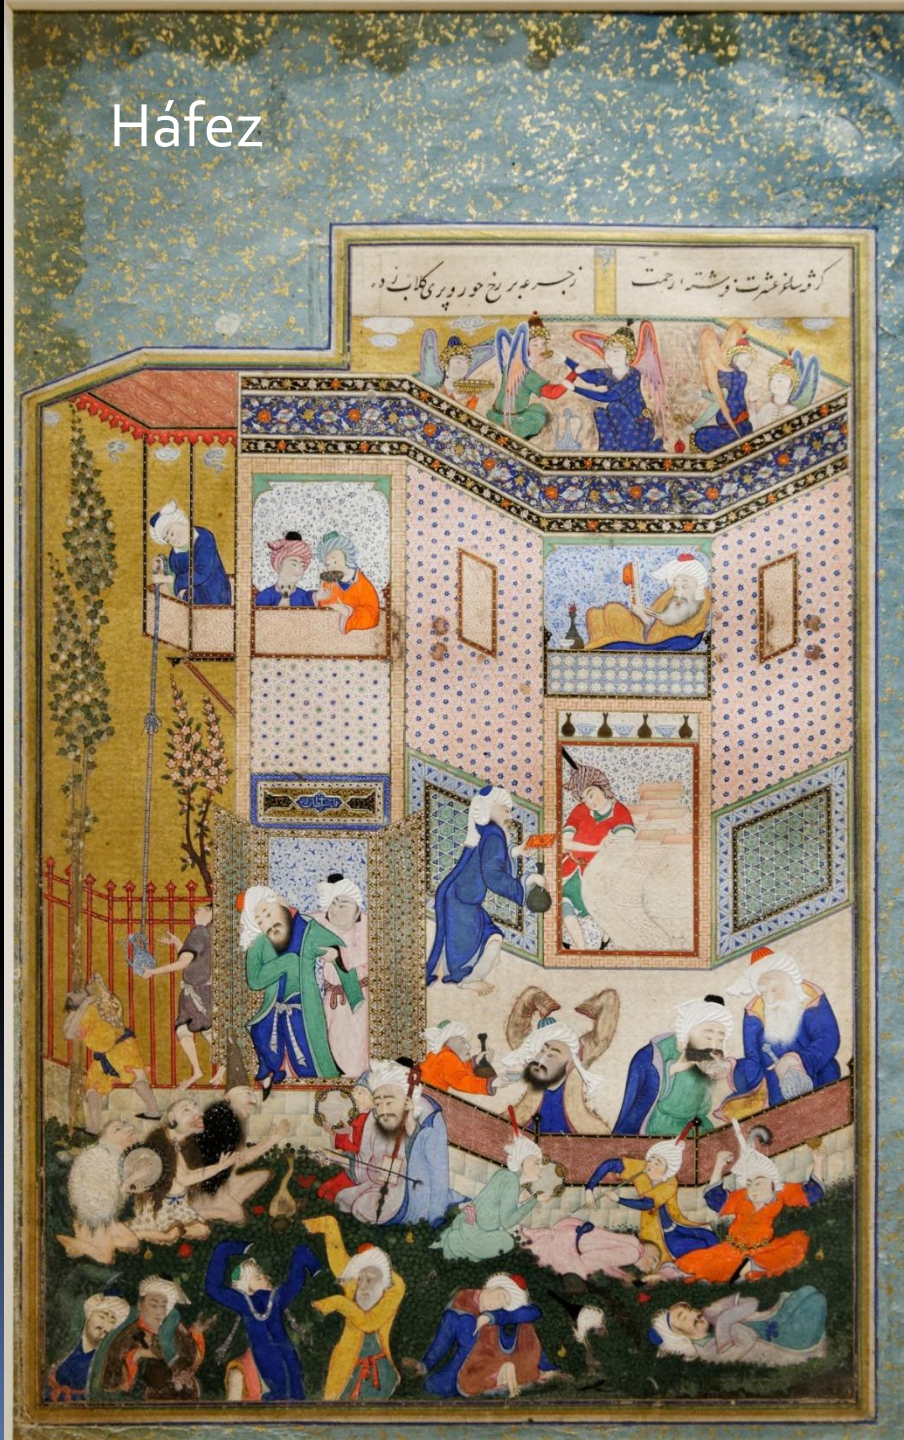 Háfez
گرفته ساغر عشرت فرشته رحمت ز جرعه بر رخ حور و پری گلاب زده